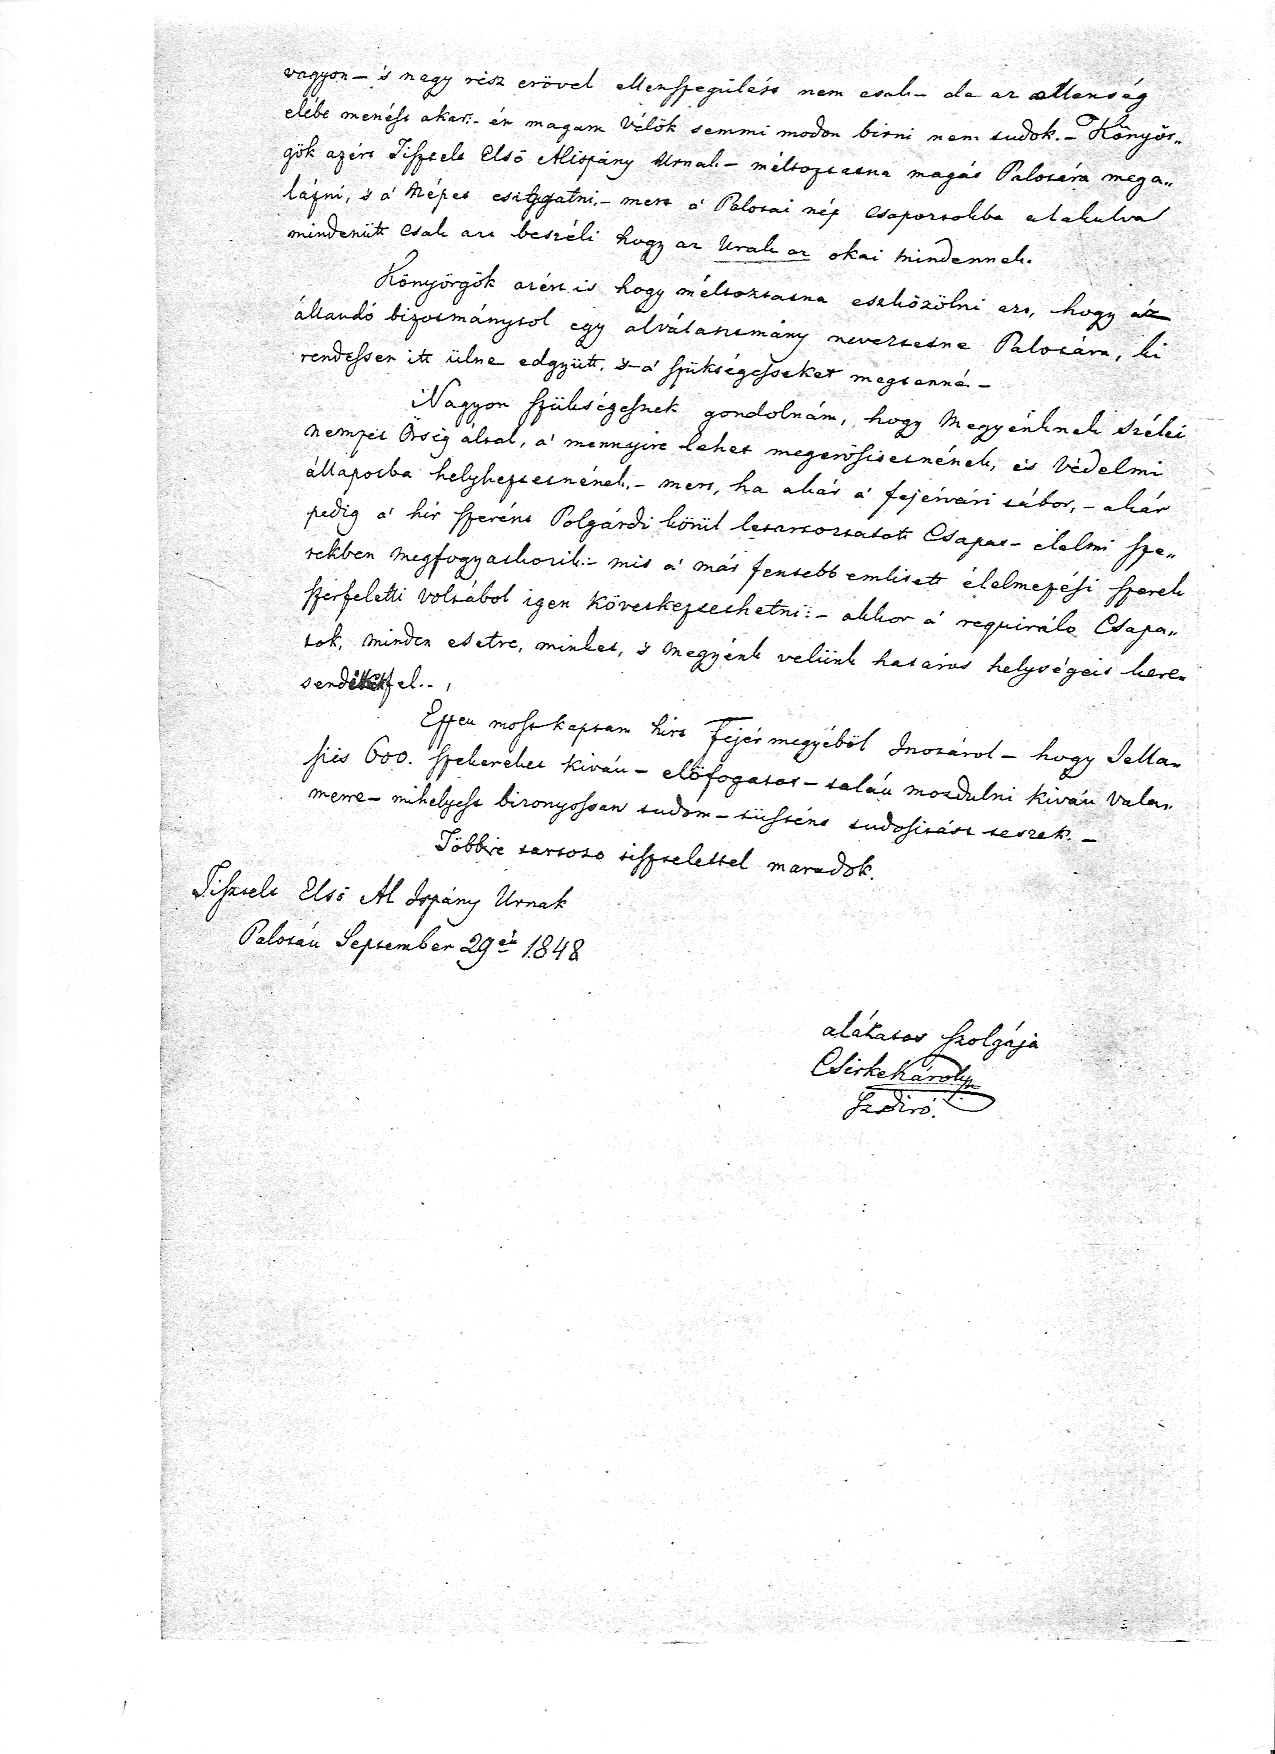 vagyon – 's nagy rész erövel ellenszegülést nem csak – de az ellenség
elébe menést akar: – én magam vélök semmi modon birni nem tudok. – Könyör„
gök azért Tisztelt Elsö Alispány Urnak – méltoztatna magát Palotára mega„
lázni, 's a' Népet csittgatni, – mert a' Palotai nép csoportokba alakulva
mindenütt csak azt beszéli hogy az Urak az okai mindennek.
Könyörgök azért is hogy méltoztatna eszközölni azt, hogy az
állandó bizotmánytol egy alválasztmány neveztetne Palotára, ki
rendessen itt ülne edgyütt, 's a' szükségesseket megtenné –
Nagyon szükségesnek gondolnám, hogy Megyénknek szélei
nemzeti Örség által, a' mennyire lehet megerösitetnének, és védelmi
állapotba helyheztetnének. – mert, ha akár a' fejérvári tábor, – akár
pedig a' hír szerént Polgárdi körül letartoztatott Csapat – élelmi sze„
rekben megfogyatkozik: – mit a' már fentebb emlitett élelmezési szerek
szerfeletti voltábol igen következtethetni: – akkor a' requiráló Csapa„
tok, minden esetre, minket, 's Megyénk velünk határos helységeit kere„
sendik fel. –
Eppen most kaptam hírt Fejér megyéböl Inotárol – hogy Jella„
sits 600. szekereket kíván – elöfogatot – talán mozdulni kíván vala„
merre – mihelyest bizonyossan tudom – tüstént tudositást teszek. –
Többire tartozo tisztelettel maradok.
Tisztelt Elsö Al Ispány Urnak
Palotán September 29én 1848
alázatos szolgája
Csirke Károly
Szbiró.